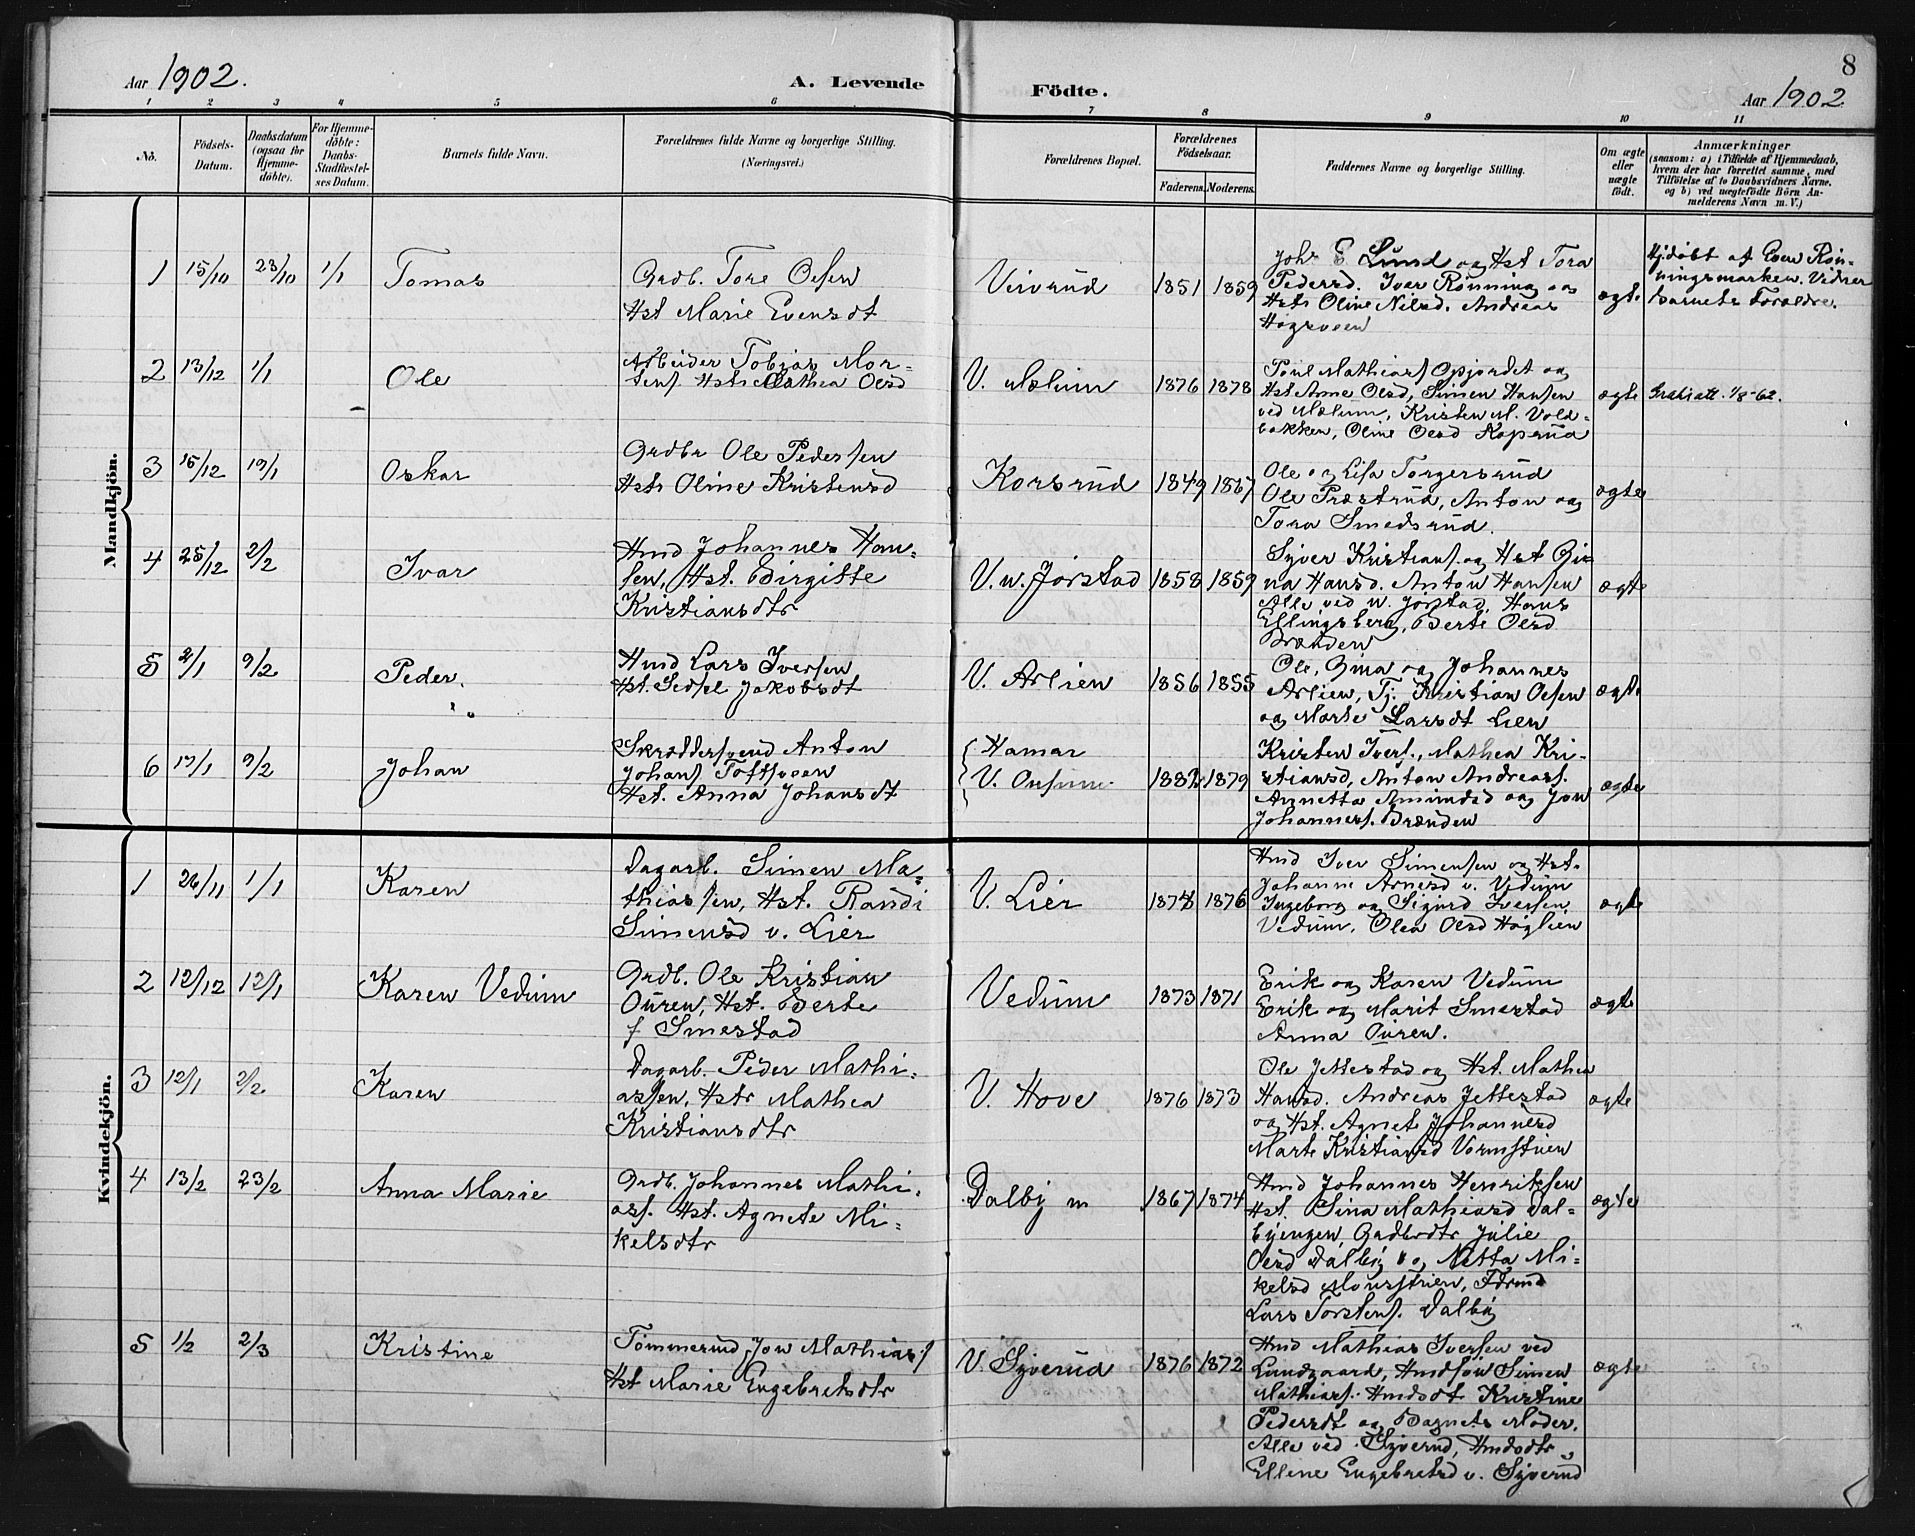 8
Aar 1902.
A. Levende
Födte.
Aar 1902
1 2 3 4 5 6 7 8 9 10 11
No.
Födsels-
Datum.
Daabsdatum
(ogsaa for
Hjemme-
döbte).
For Hjemme-
döbte:
Daabs-
Stadfæstel-
ses Datum.
Barnets fulde Navn.
Forældrenes fulde Navne og borgerlige Stilling.
(Næringsvei.)
Forældrenes Bopæl.
Forældrenes
Födselsaar.
Faderens. Moderens.
Faddernes Navne og borgerlige Stilling.
Om ægte
eller
uægte
födt.
Anmærkninger
(saasom: a) i Tilfælde af Hjemmedaab,
hvem der har forrettet samme, med
Tilföielse af to Daabsvidners Navne,
og b) ved uægtefödte Börn An-
melderens Navn m. V.)
Mandkjön.
1 15/10 23/10 1/1 Tomas
Grdb. Tore Olsen
Hst Marie Evensdt
1851 1859
Joh E Lund og Hst Tora
Pedersd. Iver Rønning og
Hstr Oline Nilsd. Andreas
Høgsveen
ægte
Hjdøbt af Even Røn-
ningsmarken. Vidner
barnets Forældre.
2 13/12 1/1 Ole
Arbeider Tobias Mor-
tens Hstr Mathea Olsd
V. Mælum 1876 1878
Poul Mathias Opjordet og
Hst Anne Olsd, Simen Hansen
ved Mælum, Kristen M. Vold-
bakken, Oline Olsd Koperud
ægte
attt. 1/8-62.
3 15/12 19/1 Oskar
Grdbr Ole Pedersen
Hstr Oline Kristensd
Korsrud 1849 1867
Ole og Lisa Torgersrud
Ole Præstrud, Anton og
Tora Smedsrud.
ægte
4 25/12 2/2 Ivar
Hmd Johannes Han-
sen, Hst. Birgitte
Kristiansdtr
V. n. Jørstad 1858 1859
Syver Kristians. og Hst Gi-
na Hansd. Anton Hansen
Alle ved n. Jørstad. Hans
Ellingsberg, Berte Olsd
Brænden
ægte
5 2/1 9/2 Peder.
Hmd Lars Iversen
Hst. Sedsel Jakobsdt
V. Arlien 1856 1855
Ole, Gina og Johannes
Arlien, Tj. Kristian Olsen
og Marte Larsdt Lien
ægte
6 17/1 9/2 Johan
Skræddersvend Anton
Johans Toftsveen
Hst. Anna Johansdt
Hamar
V. Onsum 1882 1879
Kristen Ivers., Mathea Kri-
stiansd, Anton Andreas.
Annette Amundsd og Jon
Johannes. Brænden
ægte
Kvindekjön.
1 26/11 1/1 Karen
Dagarb. Simen Ma-
thiassen, Hst. Randi
Simensd v. Lier
V. Lier 1878 1876
Hmd Iver Simensen og Hst.
Johanne Arnesd v. Vedum
Ingeborg og Sigurd Iversen
Vedum, Olea Olsd Høglien
ægte
2 12/12 12/1 Karen Vedum
Grdb. Ole Kristian
Ouren, Hst. Berte
f Smestad
Vedum 1873 1871
Erik og Karen Vedum
Erik og Marit Smestad
Anna Ouren.
ægte
3 12/1 2/2 Karen
Dagarb. Peder Mathi-
assen, Hstr Mathea
Kristiansdtr
V. Hove 1876 1873
Ole Jettestad og Hst. Mathea
Hansd. Andreas Jettestad
og Hst. Agnete Johannesd
Marte Kristiansd Vormstuen
ægte
4 13/2 23/2 Anna Marie
Grdb. Johannes Mathi-
as. Hst. Agnete Mi-
kelsdtr
Dalby n 1867 1874
Hmd Johannes Henriksen
Hst. Sina Mathiasd Dal-
byengen, Grdbrdtr Julie
Olsd Dalby og Netta Mi-
kelsd
Lars Torstens. Dalby
ægte
5 1/2 2/3 Kristine
Tømmermd Jon Mathias.
Hst Marie Engebretsdtr
V. Syverud 1876 1872
Hmd Mathias Iversen ved
Lundgaard, Hmdsøn Simen
Mathias. Hmdsdt Kristine
Pedersdt og Barnets Moder.
Alle ved Syverud, Hmdsdtr
Ellene Engebretsd v. Syverud
ægte